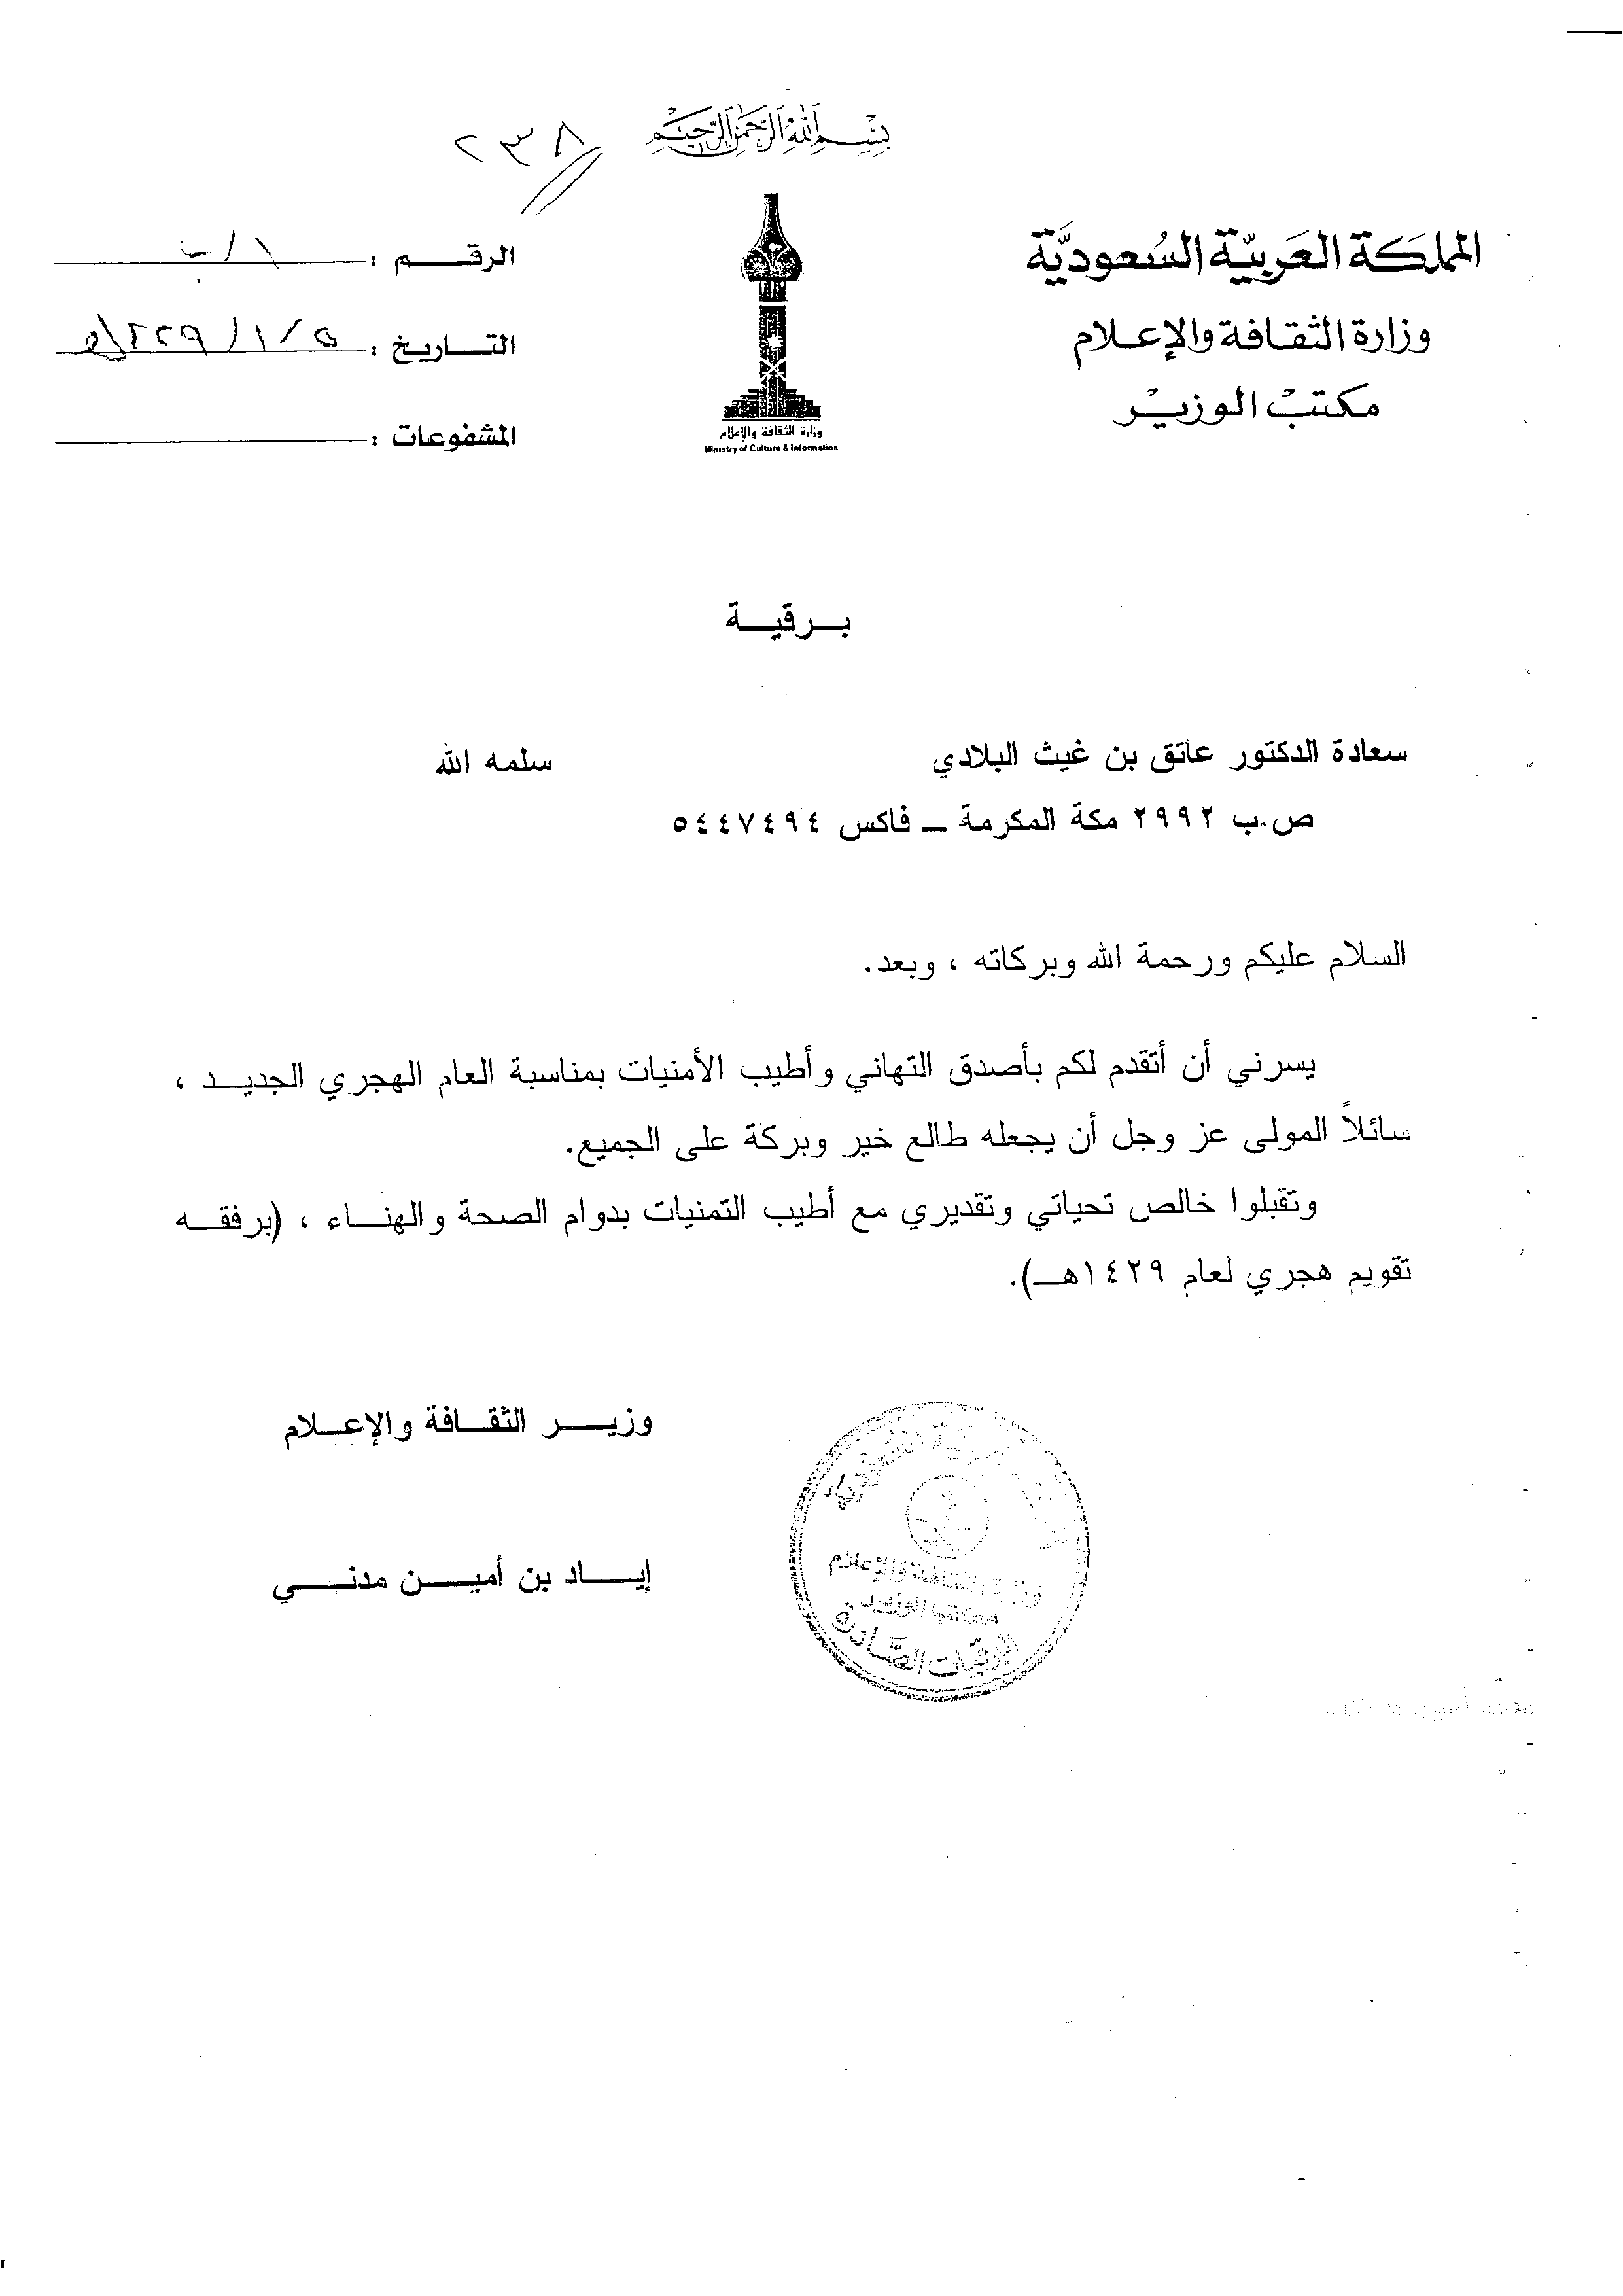 بسم الله الرحمن الرحيم
٢٣٨
المملكة العربية السعودية
وزارة الثقافة والإعلام
مكتب الوزير
وزارة الثقافة والإعلام
Ministry of Culture & Information
الرقـــم : ١/ب
التـــاريخ :
المشفوعات :
بـرقيـة
سعادة الدكتور عاتق بن غيث البلادي سلمه الله
ص.ب ٢٩٩٢ مكة المكرمة ـ فاكس ٥٤٤٧٤٩٤
السلام عليكم ورحمة الله وبركاته ، وبعد.
يسرني أن أتقدم لكم بأصدق التهاني وأطيب الأمنيات بمناسبة العام الهجري الجديـد ،
سائلاً المولى عز وجل أن يجعله طالع خير وبركة على الجميع.
وتقبلوا خالص تحياتي وتقديري مع أطيب التمنيات بدوام الصحة والهنـاء ، (برفقـه
تقويم هجري لعام ١٤٢٩هـ).
وزيـــر الثقـافة والإعـلام
إيـــاد بن أميـــن مدنــــي
وزارة الثقافة والإعلام
مكتب الوزير
البرقيات الصَّادرة